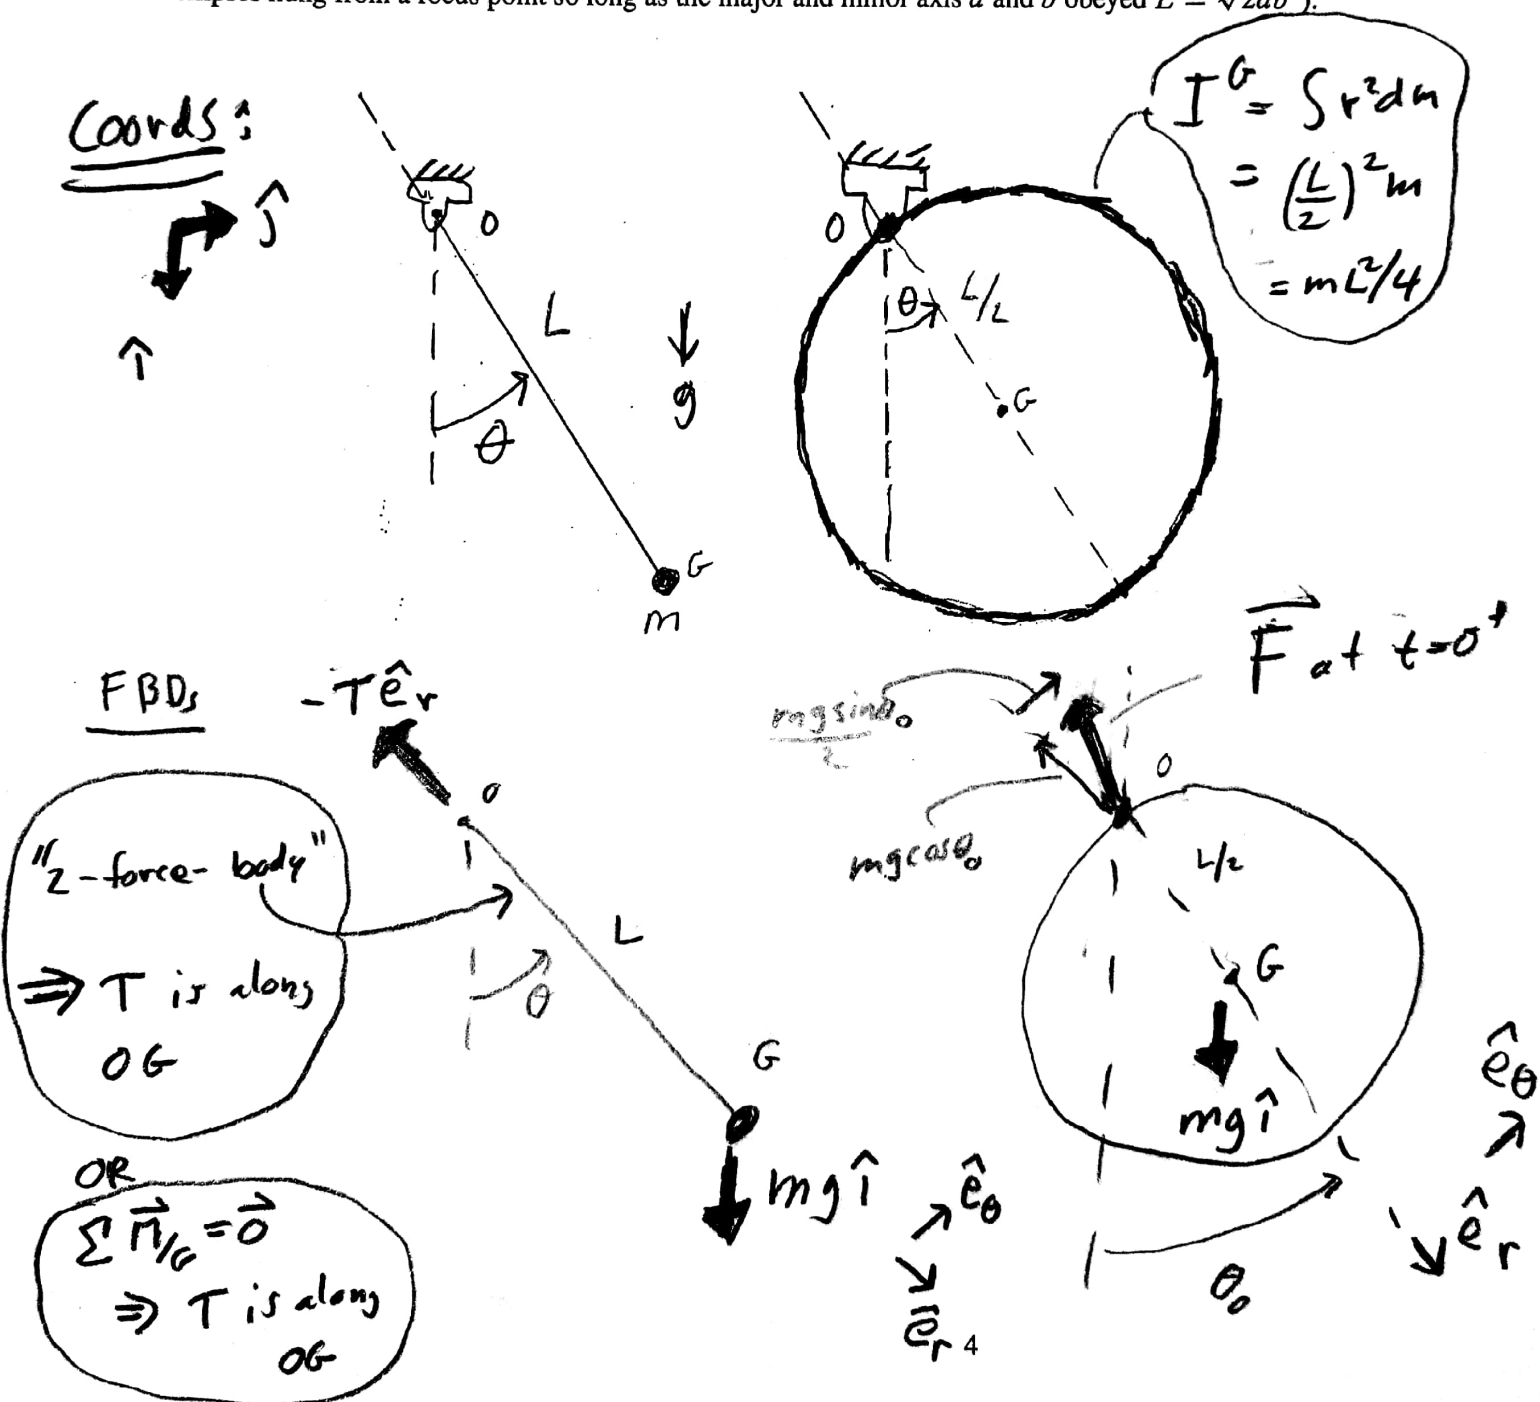 hung from a focus point so long as the major and minor axis a and b obeyed L = √2ab ).
Coords:
ĵ
î
O
L
θ
g
G
m
O
θ
L/2
G
I^G = ∫ r²dm
= (L/2)² m
= mL²/4
FBDs
-T ê_r
O
"2-force-body"
⇒ T is along
OG
L
θ
G
mg î
ê_θ
ē_r
OR
Σ M⃗/G = 0⃗
⇒ T is along
OG
F⃗ at t=0⁺
mg sinθ₀
2
mg cosθ₀
O
L/2
G
mg î
ê_θ
ê_r
θ₀
4